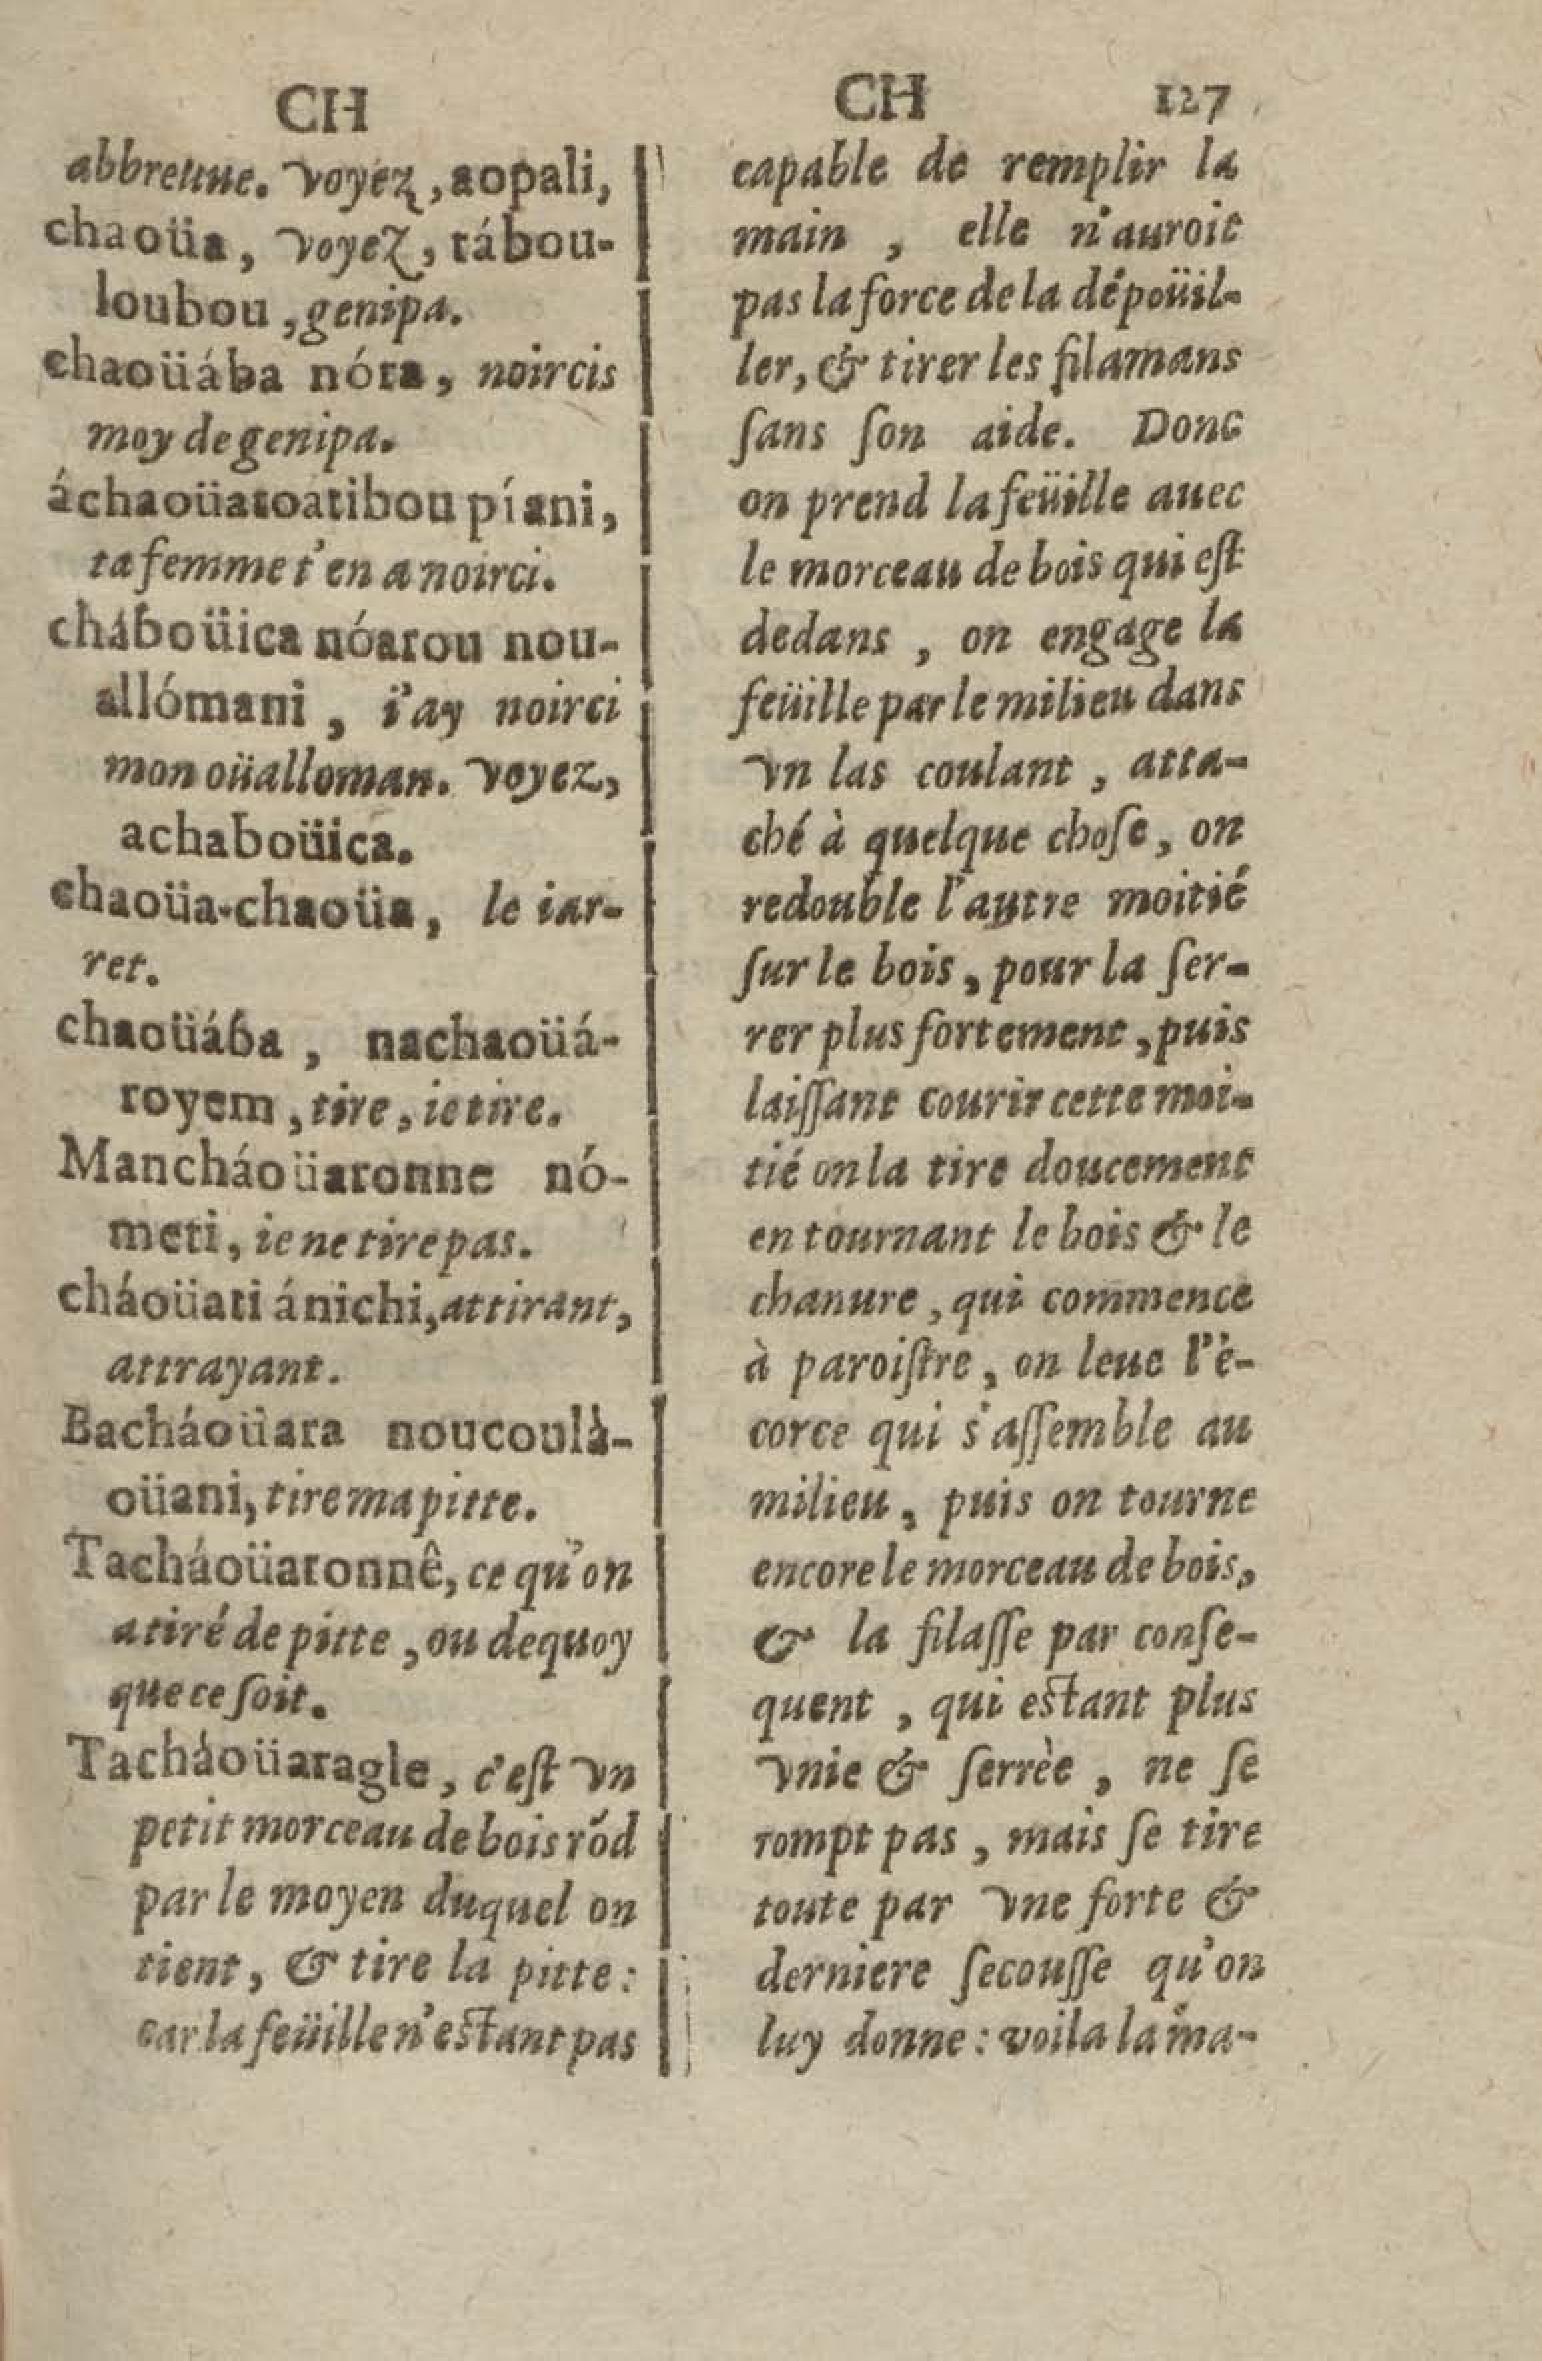 CH
abbreuue. voyez, aopali,
chaoüa, voyez, tábou-
loubou, genipa.
chaoüába nóra, noircis
moy de genipa.
áchaoüatoatibou píani,
ta femme t'en a noirci.
cháboüica nóarou nou-
allómani, i'ay noirci
mon oüalloman. voyez,
achaboüica.
chaoüa-chaoüa, le iar-
ret.
chaoüába, nachaoüá-
royem, tire, ie tire.
Mancháoüaronne nó-
meti, ie ne tire pas.
cháoüati ánichi, attirant,
attrayant.
Bacháoüara noucoulà-
oüani, tire ma pitte.
Tacháoüaronnê, ce qu'on
a tiré de pitte, ou dequoy
que ce ſoit.
Tacháoüaragle, c'eſt vn
petit morceau de bois rõd
par le moyen duquel on
tient, & tire la pitte:
car la feüille n'estant pas
CH 127
capable de remplir la
main, elle n'auroit
pas la force de la dépoüil-
ler, & tirer les filamans
ſans ſon aide. Donc
on prend la feüille auec
le morceau de bois qui eſt
dedans, on engage la
feüille par le milieu dans
vn las coulant, atta-
ché à quelque choſe, on
redouble l'autre moitié
ſur le bois, pour la ſer-
rer plus fortement, puis
laiſſant courir cette moi-
tié on la tire doucement
en tournant le bois & le
chanure, qui commence
à paroiſtre, on leue l'è-
corce qui s'aſſemble au
milieu, puis on tourne
encore le morceau de bois,
& la filaſſe par conſe-
quent, qui estant plus
vnie & ſerrèe, ne ſe
rompt pas, mais ſe tire
toute par vne forte &
derniere ſecouſſe qu'on
luy donne: voila la ma-